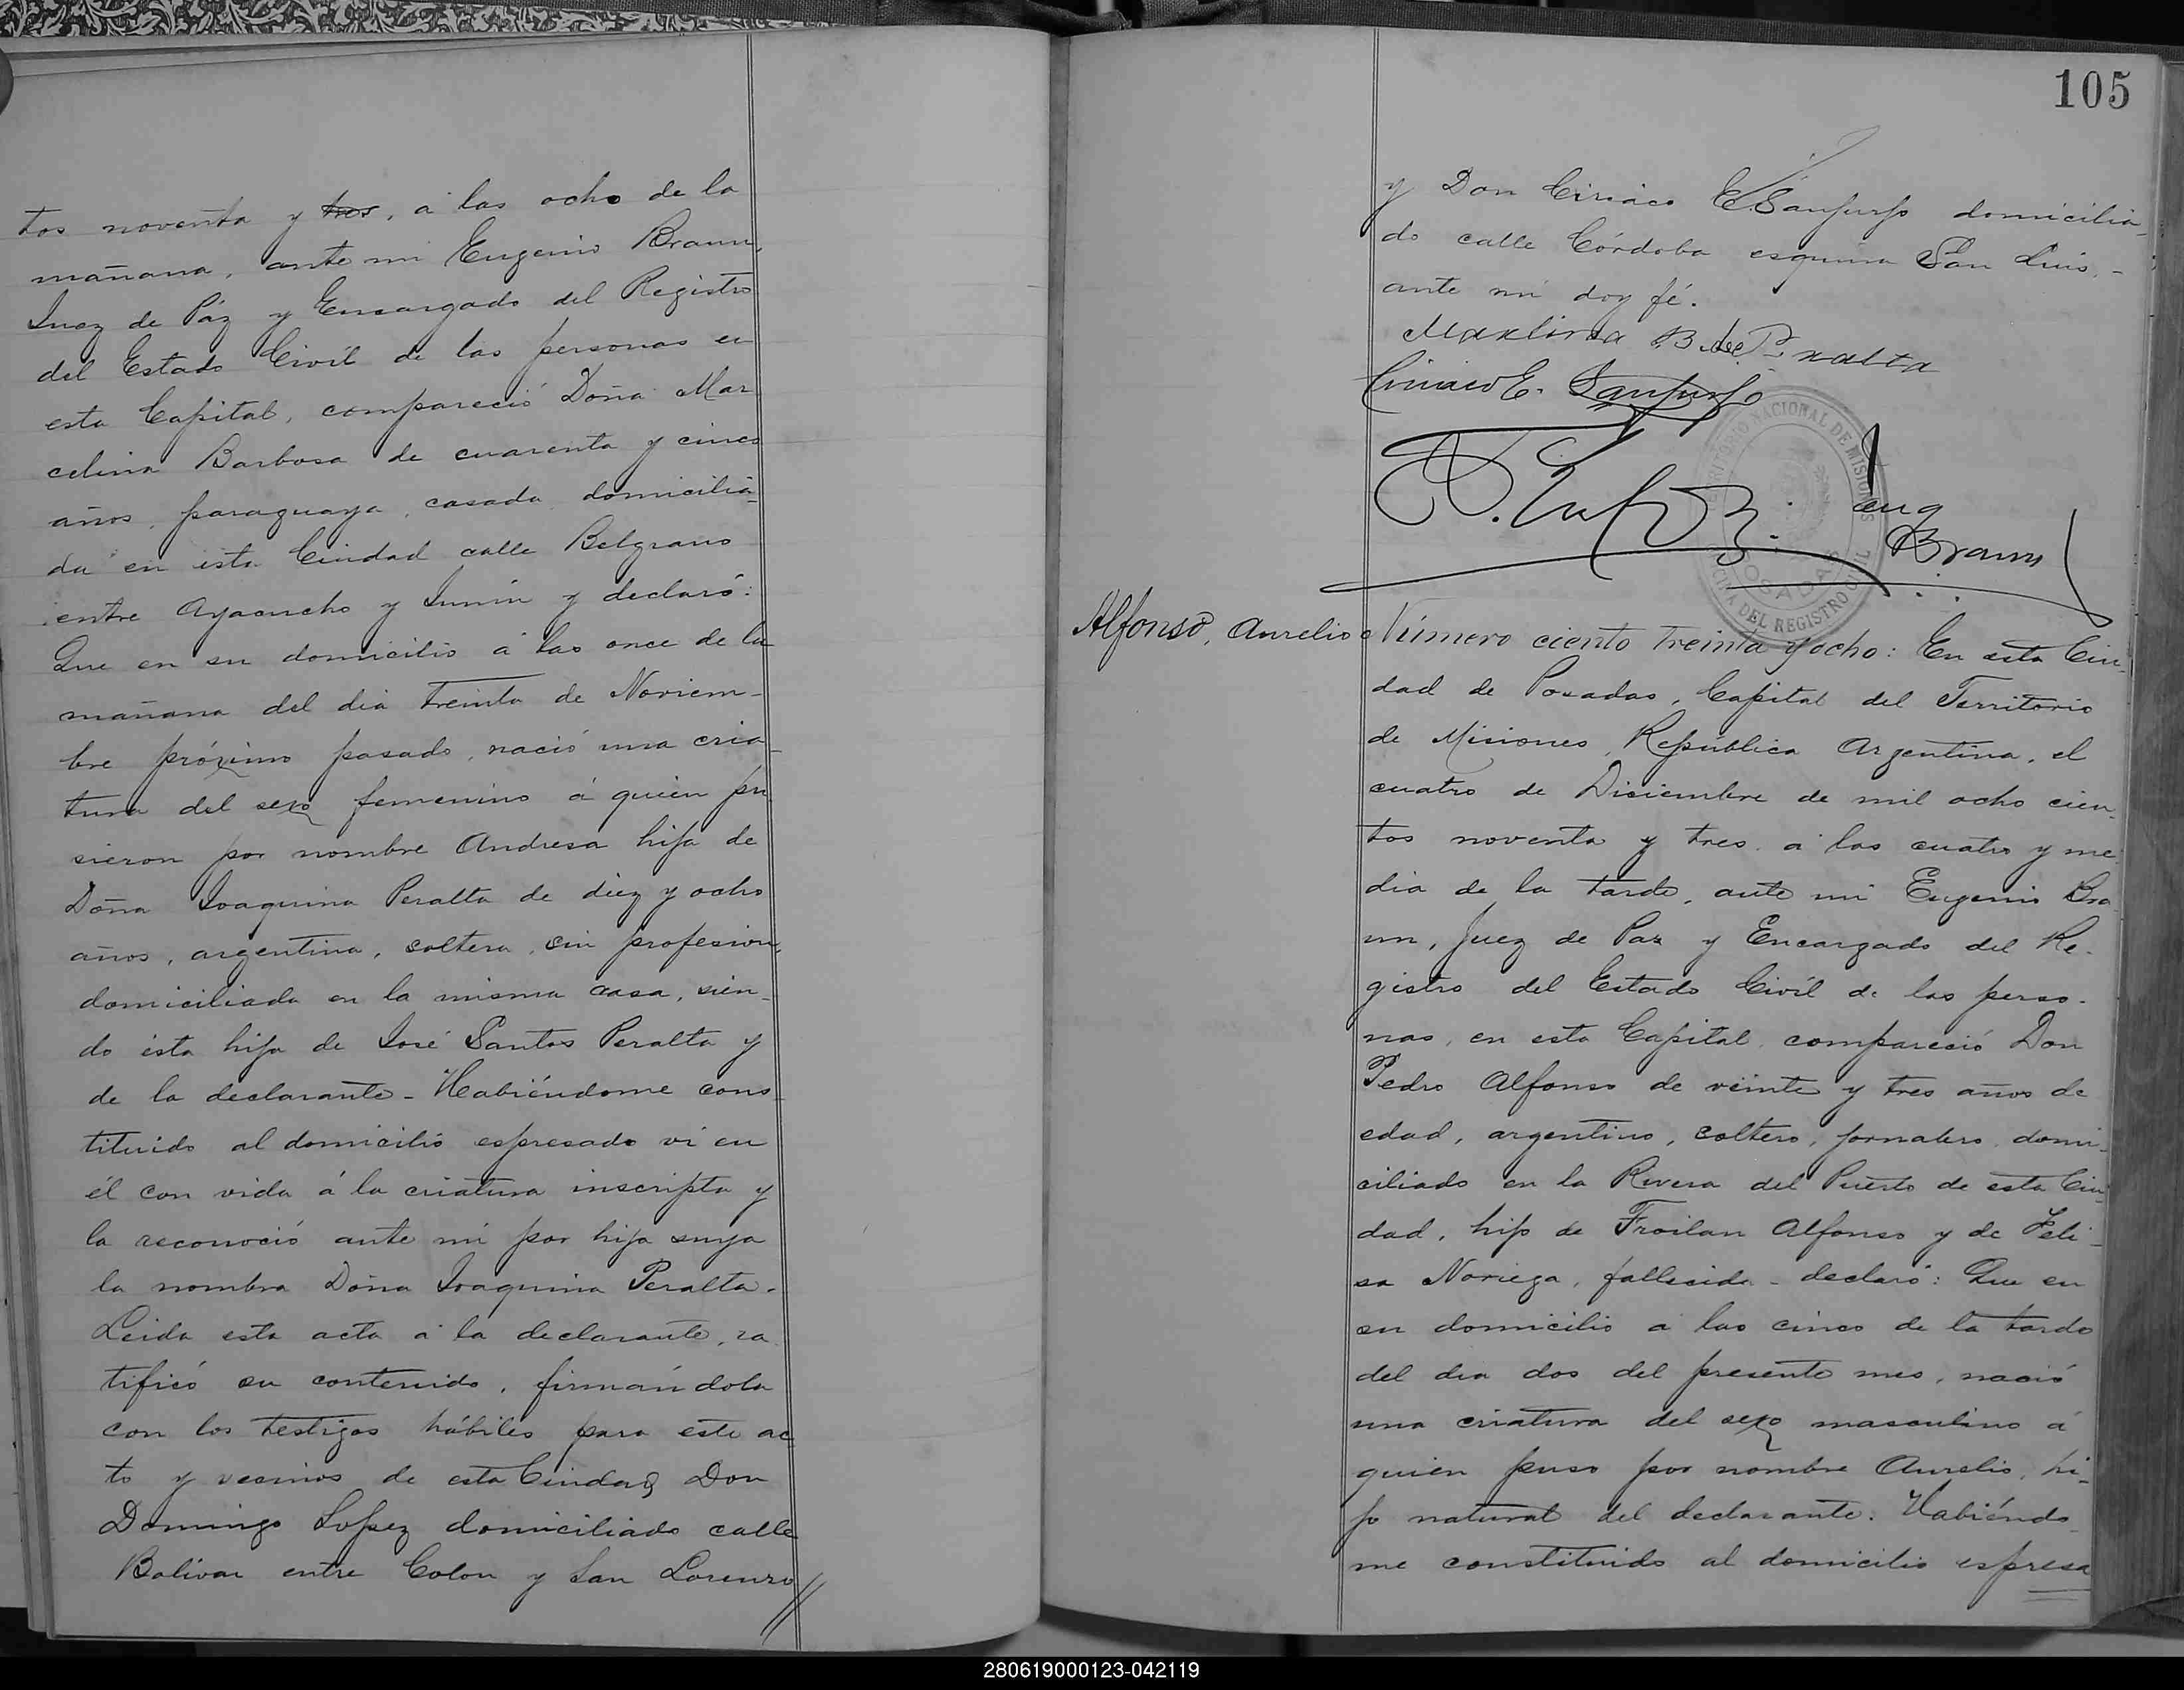 tos noventa y tres, á las ocho de la
mañana, ante mi Eugenio Braun,
Juez de Páz y Encargado del Registro
del Estado Civíl de las personas en
esta Capital, compareció Doña Mar
celina Barbosa de cuarenta y cinco
años, paraguaya, casada domicilia-
da en esta Ciudad calle Belgrano
entre Ayacucho y Junín y declaró:
Que en su domicilio á las once de la
mañana del dia treinta de Noviem-
bre próximo pasado, nació una cria-
tura del sexo femenino á quien pu
sieron por nombre Andresa hija de
Doña Joaquina Peralta de diez y ocho
años, argentina, soltera, sin profesion,
domiciliada en la misma casa, sien-
do ésta hija de José Santos Peralta y
de la declarante - Habiéndome cons-
tituido al domicilio espresado vi en
él con vida á la criatura inscripta y
la reconoció ante mi por hija suya
la nombra Doña Joaquina Peralta.
Leida esta acta á la declarante, ra
tificó su contenido, firmándola
con los testigos hábiles para este ac
to y vecinos de esta Ciudad, Don
Domingo Lopez domiciliado calle
Bolivar entre Colon y San Lorenzo //
105
y Don Ciriaco E. Sanjurjo domicilia-
do calle Córdoba esquina San Luis, -
ante mi doy fé.
Marlina B de Peralta
Ciriaco E. Sanjurjo
Eug Braun
TERRITORIO NACIONAL DE MISIONES
POSADAS
DEL REGISTRO CIVIL
Alfonso, Aurelio
Número ciento treinta y ocho: En esta Ciu-
dad de Posadas, Capital del Territorio
de Misiones, República Argentina, el
cuatro de Diciembre de mil ocho cien-
tos noventa y tres á las cuatro y me
dia de la tarde, ante mi Eugenio Bra
un, Juez de Paz y Encargado del Re-
gistro del Estado Civíl de las perso-
nas, en esta Capital, compareció Don
Pedro Alfonso de veinte y tres años de
edad, argentino, soltero, jornalero, domi-
ciliado en la Rivera del Puerto de esta Ciu-
dad, hijo de Froilan Alfonso y de Feli-
sa Noriega, fallecida - declaró: Que en
su domicilio á las cinco de la tarde
del dia dos del presente mes, nació
una criatura del sexo masculino á
quien puso por nombre Aurelio, hi-
jo natural del declarante. Habiéndo-
me constituido al domicilio espresa
280619000123-042119